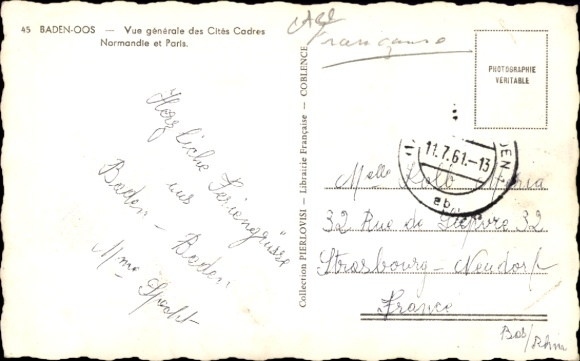 45 BADEN-OOS — Vue générale des Cités Cadres
Normandie et Paris.
Française
PHOTOGRAPHIE
VÉRITABLE
Collection PIERLOVISI — Librairie Française — COBLENCE
11.7.61.-13
Herzliche Feriengrüsse
aus
Baden-Baden
Mme
Melle Kolb Maria
32 Rue de 32
Strasbourg-Neudorf
France
Bas/Rhin